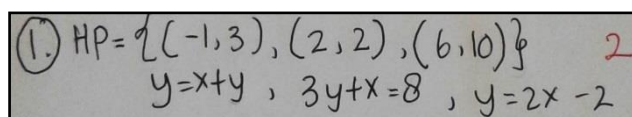 1. HP = {(-1,3), (2,2), (6,10)} 2
y=x+y , 3y+x=8 , y=2x-2